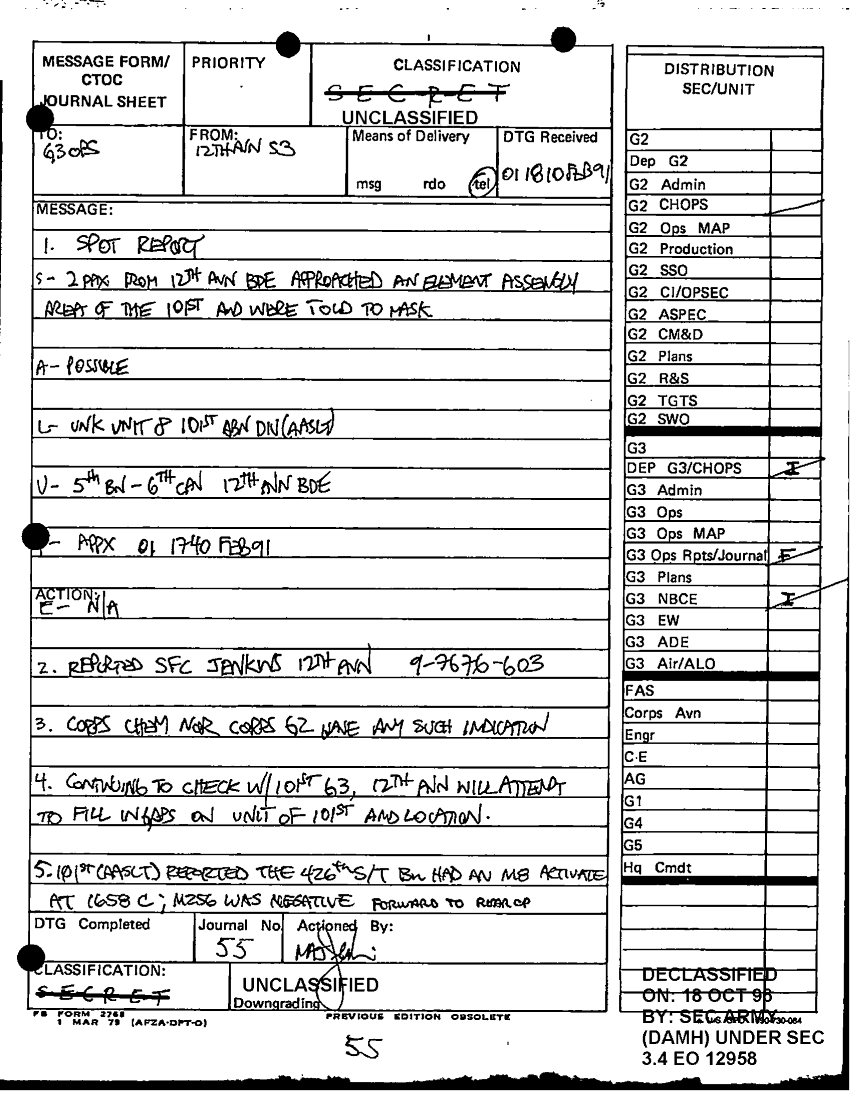 MESSAGE FORM/
CTOC
JOURNAL SHEET
PRIORITY
CLASSIFICATION
S E C R E T
UNCLASSIFIED
TO:
G3 OPS
FROM:
12TH AVN S3
Means of Delivery
msg rdo tel
DTG Received
011810FEB91
MESSAGE:
1. SPOT REPORT
S- 2 PAX FROM 12TH AVN BDE APPROACHED AN ELEMENT ASSEMBLY
AREA OF THE 101ST AND WERE TOLD TO MASK
A- POSSIBLE
L- UNK UNIT 101ST ABN DIV (AASLT)
U- 5th BN - 6TH CAV 12TH AVN BDE
- APPX 01 1740 FEB91
ACTION:
E- N/A
2. REPORTED SFC JENKINS 12TH AVN 9-7676-603
3. CORPS CHEM NOR CORPS G2 HAVE ANY SUCH INDICATION
4. CONTINUING TO CHECK W/ 101ST G3, 12TH AVN WILL ATTEMPT
TO FILL IN GAPS ON UNIT OF 101ST AND LOCATION.
5. 101ST (AASLT) REPORTED THE 426th S/T BN HAD AN M8 ACTIVATE
AT 1658 C; M256 WAS NEGATIVE FORWARD TO REAR CP
DTG Completed
Journal No
55
Actioned By:
CLASSIFICATION:
S E C R E T
UNCLASSIFIED
Downgrading
FB FORM 2768
1 MAR 79 (AFZA-DPT-O)
PREVIOUS EDITION OBSOLETE
55
DISTRIBUTION
SEC/UNIT
G2
Dep G2
G2 Admin
G2 CHOPS
G2 Ops MAP
G2 Production
G2 SSO
G2 CI/OPSEC
G2 ASPEC
G2 CM&D
G2 Plans
G2 R&S
G2 TGTS
G2 SWO
G3
DEP G3/CHOPS I
G3 Admin
G3 Ops
G3 Ops MAP
G3 Ops Rpts/Journal F
G3 Plans
G3 NBCE I
G3 EW
G3 ADE
G3 Air/ALO
FAS
Corps Avn
Engr
C-E
AG
G1
G4
G5
Hq Cmdt
DECLASSIFIED
ON: 18 OCT 96
BY: SEC ARMY
(DAMH) UNDER SEC
3.4 EO 12958